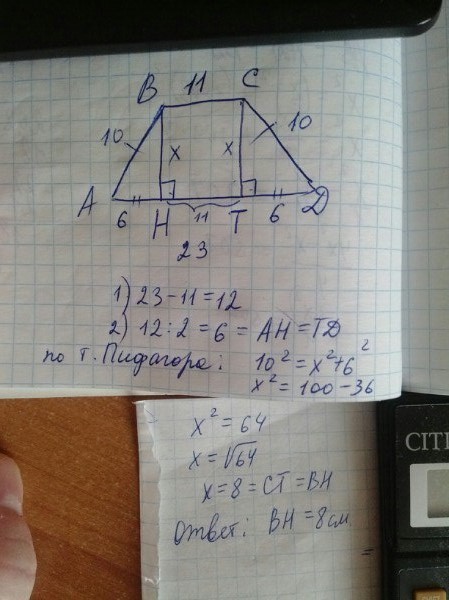 B 11 C
10 10
x x
A 6 H 11 T 6 D
23
1) 23-11=12
2) 12:2=6=AH=TD
по т. Пифагора: 10²=x²+6²
x²=100-36
x²=64
x=√64
x=8=CT=BH
Ответ: BH=8см
CITI
=